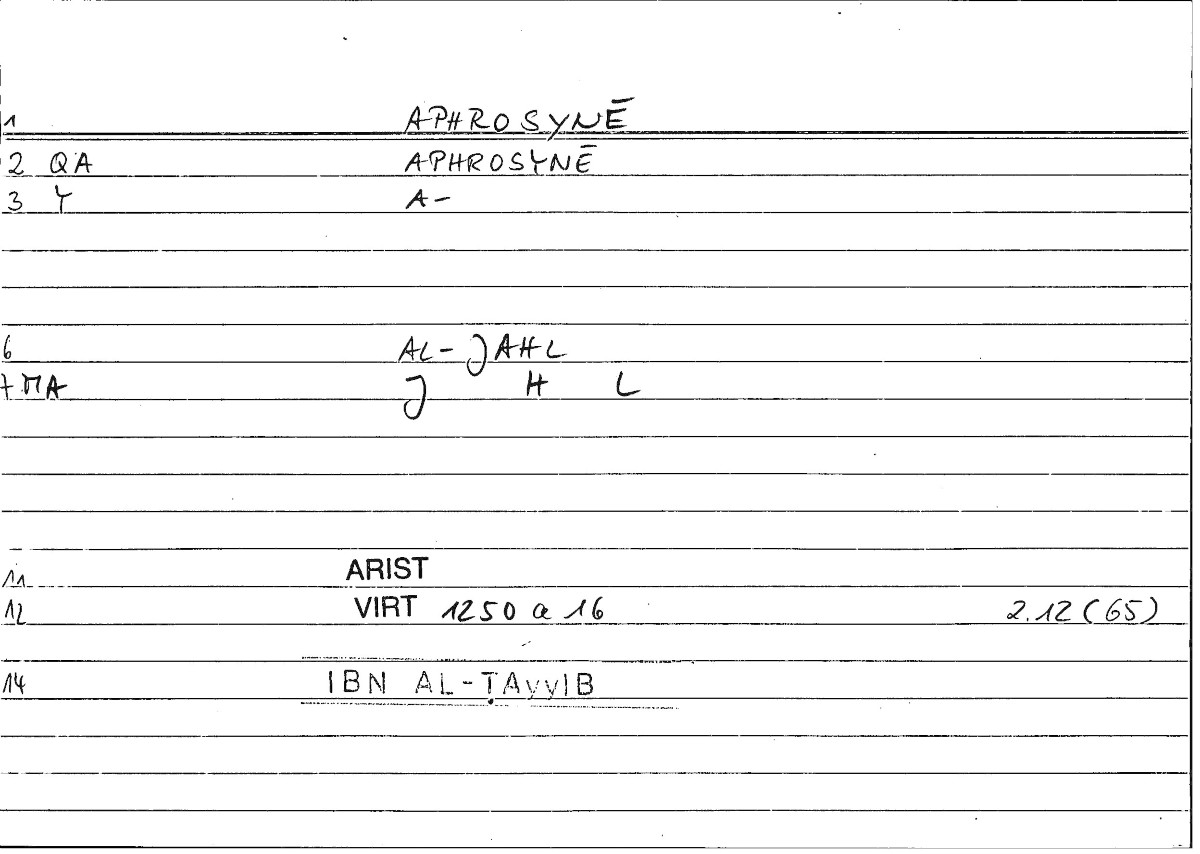 1 APHROSYNĒ
2 QA APHROSYNĒ
3 Y A-
6 AL-JAHL
7 MA J H L
11 ARIST
12 VIRT 1250 a 16 2.12 (65)
14 IBN AL-ṬAyyIB